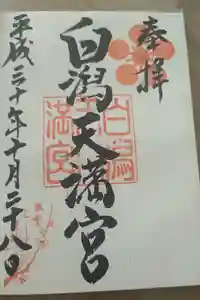 奉拝
白潟天満宮
白潟
天満宮
平成三十年十月二十八日